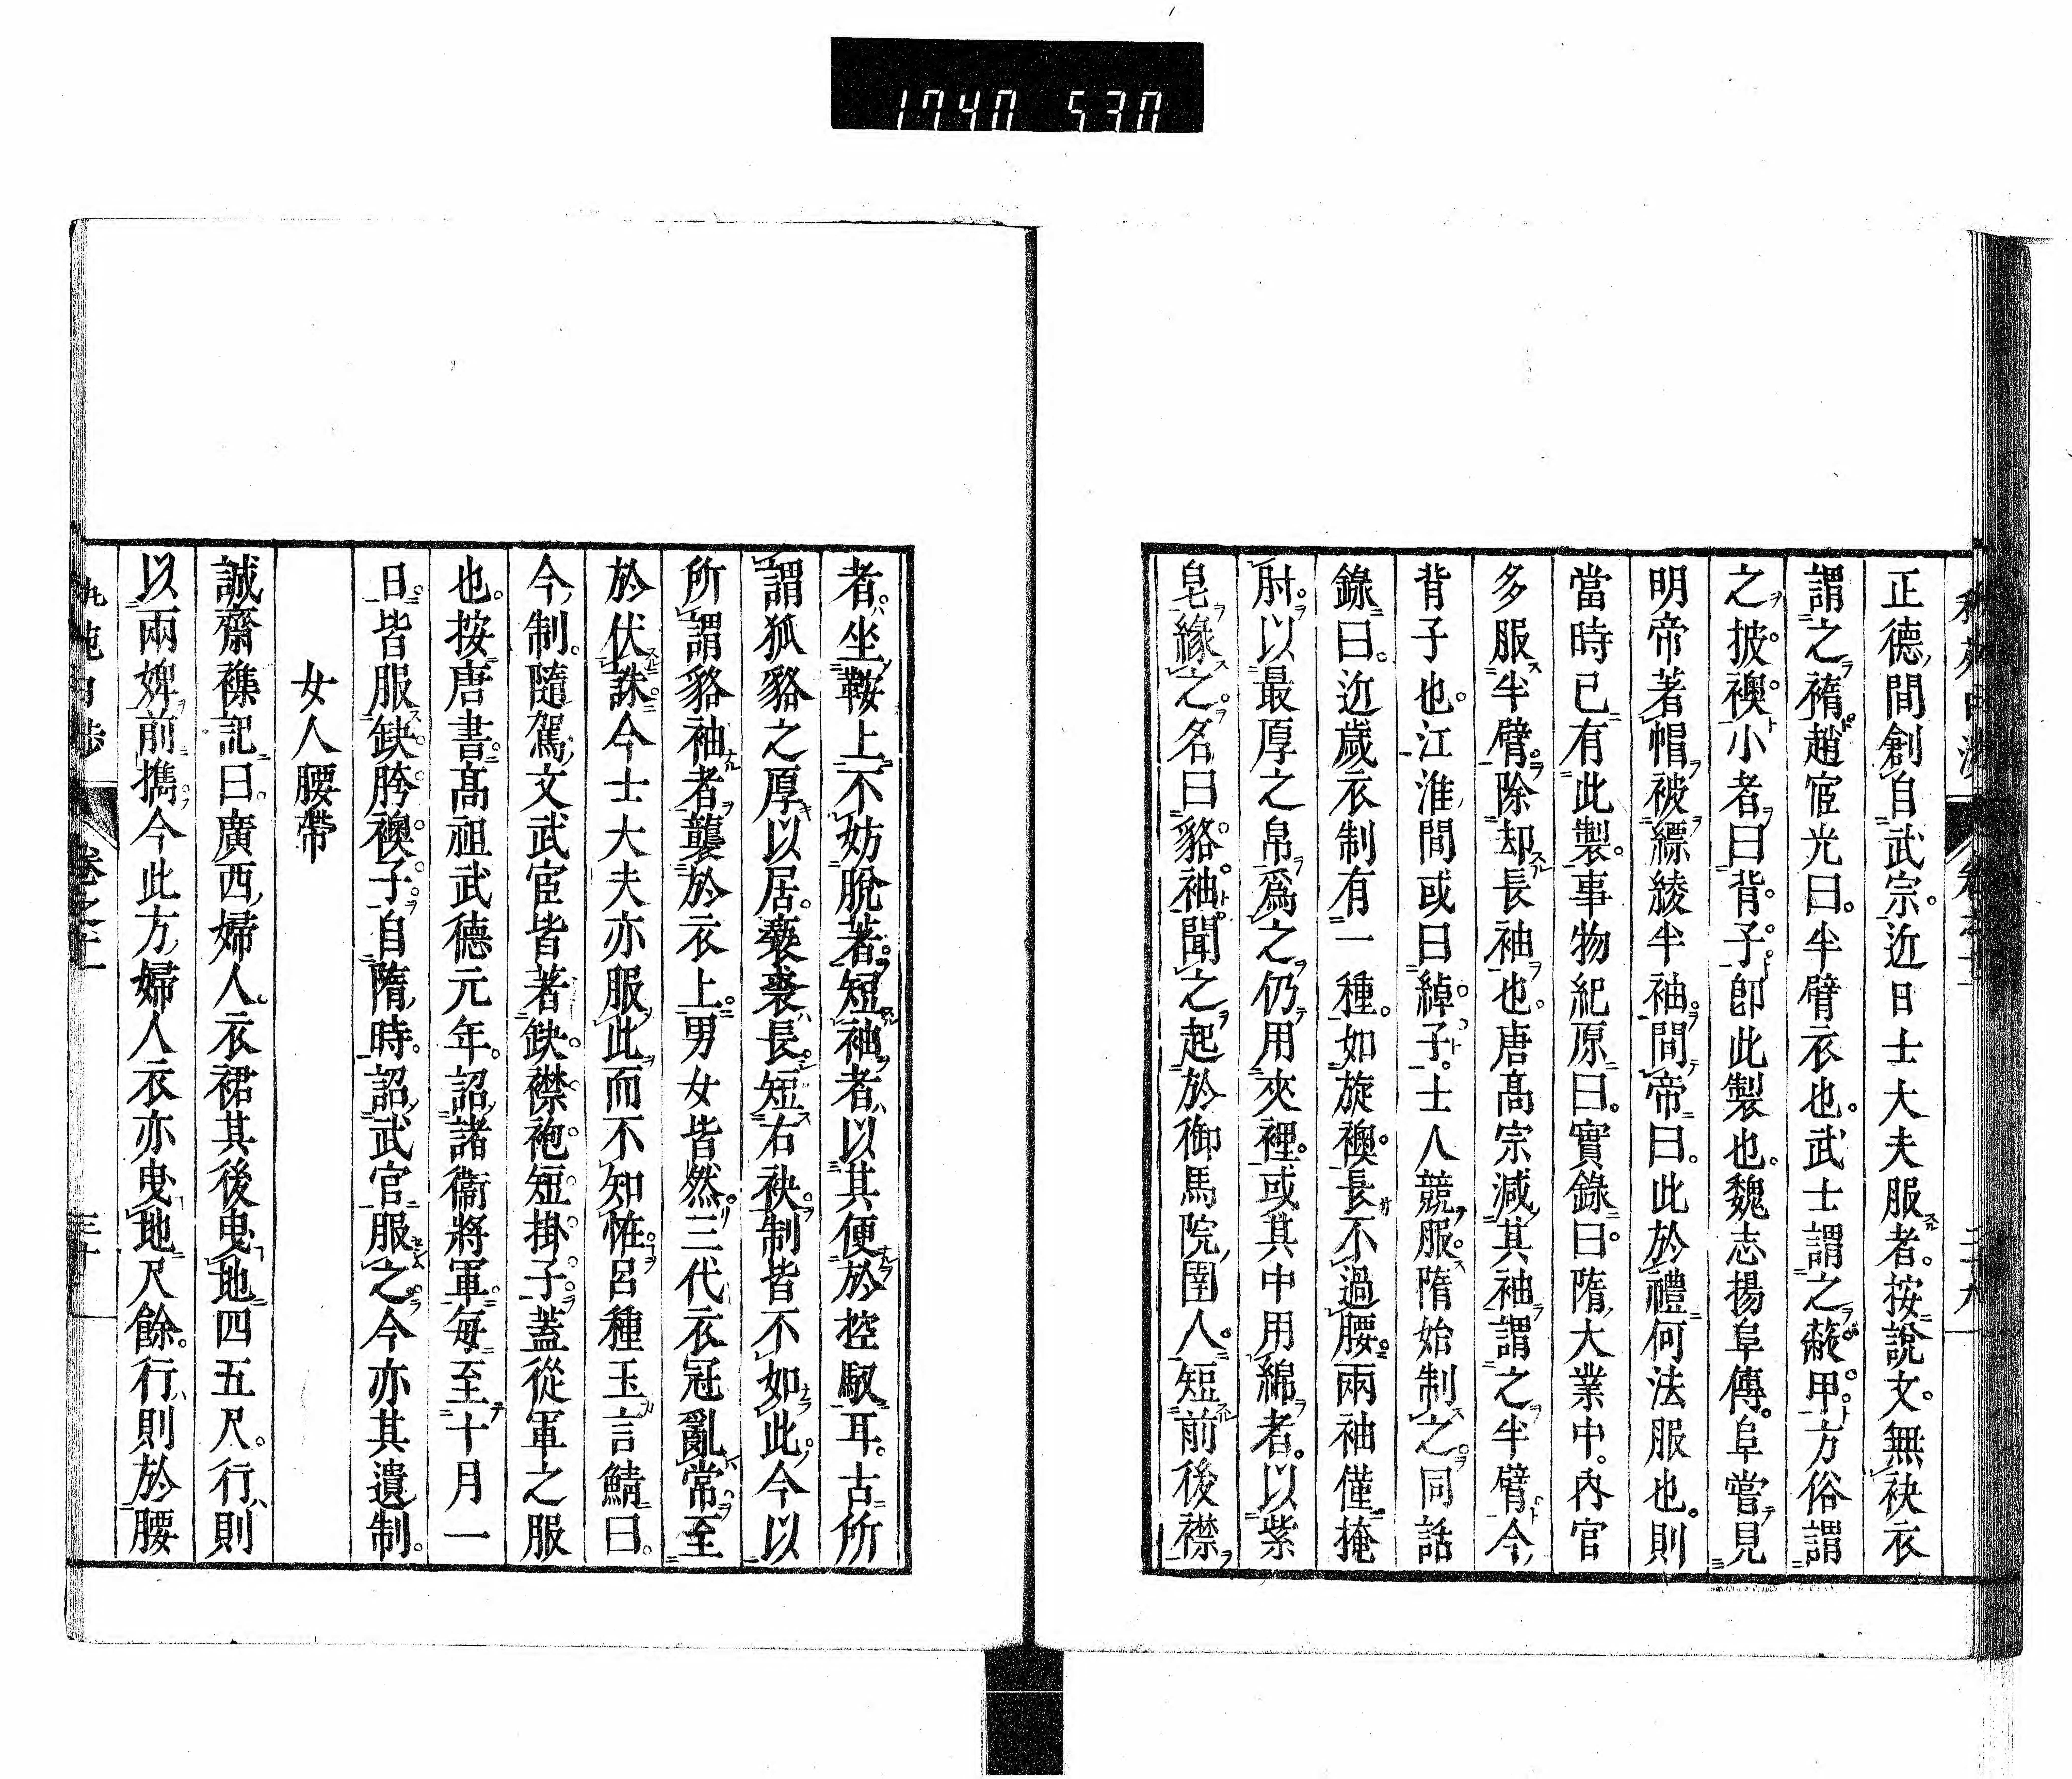 1740 530
正德間創自武宗近日士大夫服者按說文無袂衣
謂之䙃趙宧光曰半臂衣也武士謂之蔽甲方俗謂
之披襖小者曰背子卽此製也魏志揚阜傳阜嘗見
明帝著帽被縹綾半袖問帝曰此於禮何法服也則
當時已有此製事物紀原曰實錄曰隋大業中內官
多服半臂除却長袖也唐高宗減其袖謂之半臂今
背子也江淮間或曰綽子士人競服隋始制之同話
錄曰近歲衣制有一種如旋襖長不過腰兩袖僅掩
肘以最厚之帛爲之仍用夾裡或其中用綿者以紫
皂緣之名曰貉袖聞之起於御馬院圉人短前後襟
者坐鞍上不妨脫著短袖者以其便於控馭耳古所
謂狐貉之厚以居褻裘長短右袂制皆不如此今以
所謂貉袖者襲於衣上男女皆然三代衣冠亂常至
於伏誅今士大夫亦服此而不知恠呂種玉言鯖曰
今制隨駕文武宦皆著鈌襟袍短掛子蓋從軍之服
也按唐書高祖武德元年詔諸衞將軍每至十月一
日皆服鈌胯襖子自隋時詔武官服之今亦其遺制
女人腰帶
誠齋襍記曰廣西婦人衣裙其後曳地四五尺行則
以兩婢前攜今此方婦人衣亦曳地尺餘行則於腰
卷之十一
三十